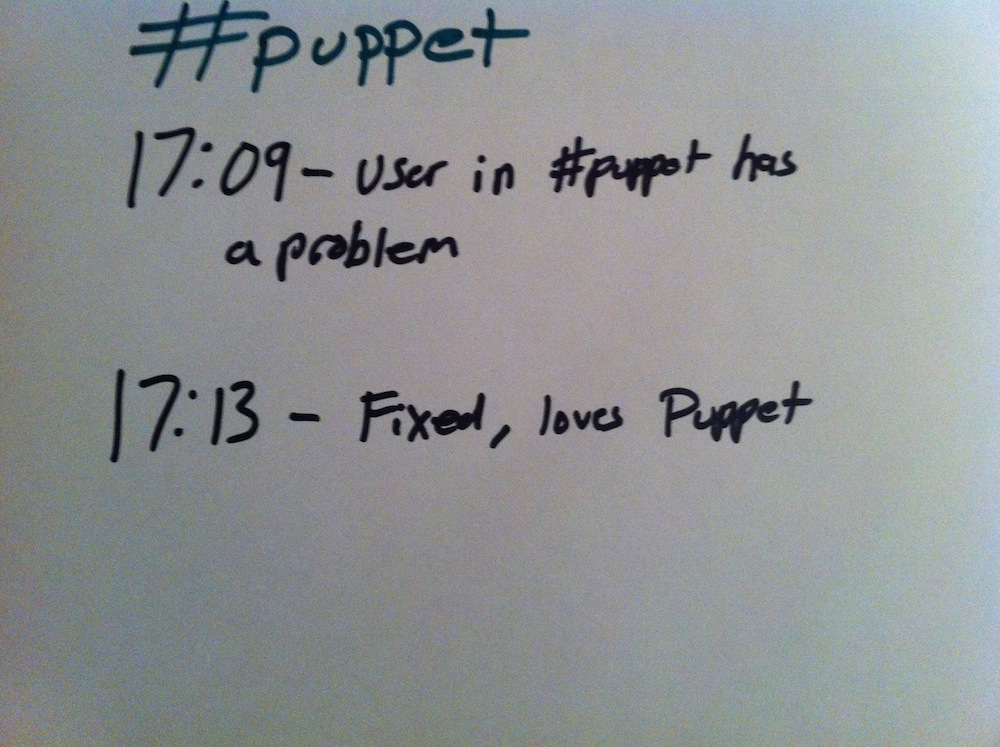 #puppet
17:09 - user in #puppet has
a problem
17:13 - Fixed, loves Puppet